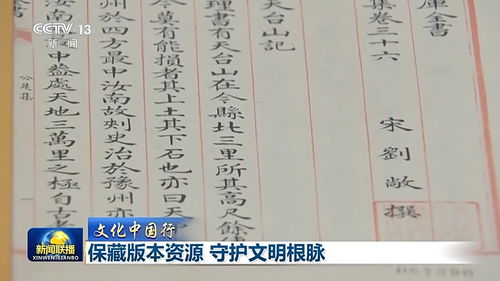 CCTV 13
新闻
庫全書
集卷三十六
宋 劉敞 撰
天台山記
理書有天台山在今縣北三里所其高尺餘
今莫有能損者其上土其下石也亦曰天
州於四方最中汝南故刺史治於豫州亦
處天地三萬里之極自古
公是集
文化中国行
新闻联播
XINWEN LIANBO
保藏版本资源 守护文明根脉